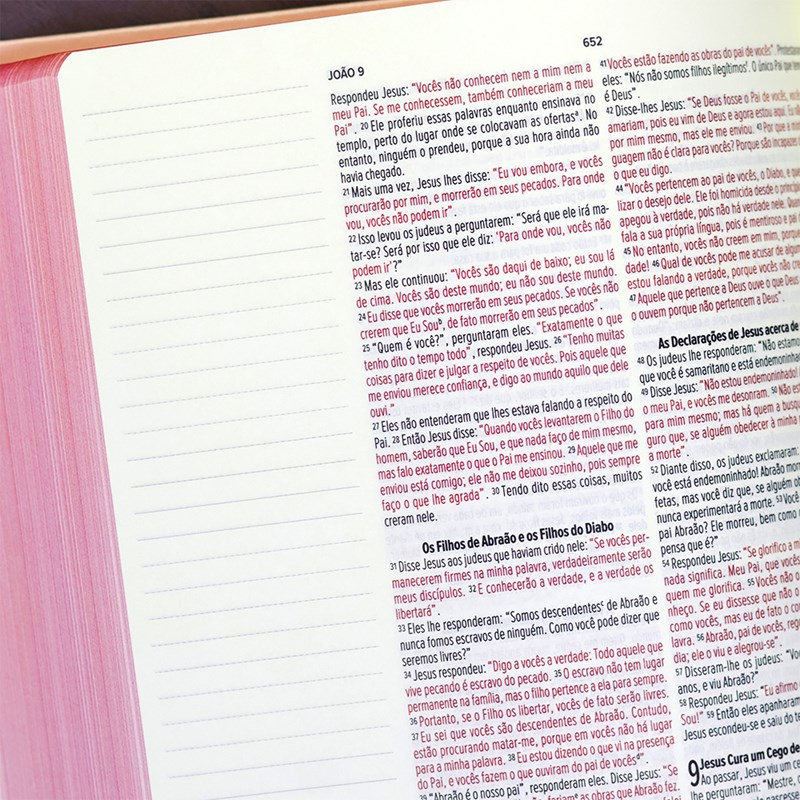 JOÃO 9
652
Respondeu Jesus: “Vocês não conhecem nem a mim nem a
meu Pai. Se me conhecessem, também conheceriam a meu
Pai”. 20 Ele proferiu essas palavras enquanto ensinava no
templo, perto do lugar onde se colocavam as ofertasª. No
entanto, ninguém o prendeu, porque a sua hora ainda não
havia chegado.
21 Mais uma vez, Jesus lhes disse: “Eu vou embora, e vocês
procurarão por mim, e morrerão em seus pecados. Para onde
vou, vocês não podem ir”.
22 Isso levou os judeus a perguntarem: “Será que ele irá ma-
tar-se? Será por isso que ele diz: ‘Para onde vou, vocês não
podem ir’?”
23 Mas ele continuou: “Vocês são daqui de baixo; eu sou lá
de cima. Vocês são deste mundo; eu não sou deste mundo.
24 Eu disse que vocês morrerão em seus pecados. Se vocês não
crerem que Eu Souᵇ, de fato morrerão em seus pecados”.
25 “Quem é você?”, perguntaram eles. “Exatamente o que
tenho dito o tempo todo”, respondeu Jesus. 26 “Tenho muitas
coisas para dizer e julgar a respeito de vocês. Pois aquele que
me enviou merece confiança, e digo ao mundo aquilo que dele
ouvi.”
27 Eles não entenderam que lhes estava falando a respeito do
Pai. 28 Então Jesus disse: “Quando vocês levantarem o Filho do
homem, saberão que Eu Sou, e que nada faço de mim mesmo,
mas falo exatamente o que o Pai me ensinou. 29 Aquele que me
enviou está comigo; ele não me deixou sozinho, pois sempre
faço o que lhe agrada”. 30 Tendo dito essas coisas, muitos
creram nele.
Os Filhos de Abraão e os Filhos do Diabo
31 Disse Jesus aos judeus que haviam crido nele: “Se vocês per-
manecerem firmes na minha palavra, verdadeiramente serão
meus discípulos. 32 E conhecerão a verdade, e a verdade os
libertará”.
33 Eles lhe responderam: “Somos descendentesᶜ de Abraão e
nunca fomos escravos de ninguém. Como você pode dizer que
seremos livres?”
34 Jesus respondeu: “Digo a vocês a verdade: Todo aquele que
vive pecando é escravo do pecado. 35 O escravo não tem lugar
permanente na família, mas o filho pertence a ela para sempre.
36 Portanto, se o Filho os libertar, vocês de fato serão livres.
37 Eu sei que vocês são descendentes de Abraão. Contudo,
estão procurando matar-me, porque em vocês não há lugar
para a minha palavra. 38 Eu estou dizendo o que vi na presença
do Pai, e vocês fazem o que ouviram do pai de vocêsᵈ”.
39 “Abraão é o nosso pai”, responderam eles. Disse Jesus: “Se
de Abraão, fariamᵉ as obras que Abraão fez.
41 Vocês estão fazendo as obras do pai de vocês”. Protestaram
eles: “Nós não somos filhos ilegítimosᶠ. O único Pai que
é Deus”.
42 Disse-lhes Jesus: “Se Deus fosse o Pai de vocês,
amariam, pois eu vim de Deus e agora estou aqui. Eu
por mim mesmo, mas ele me enviou. 43 Por que a
guagem não é clara para vocês? Porque são incapazes
o que eu digo.
44 “Vocês pertencem ao pai de vocês, o Diabo, e
lizar o desejo dele. Ele foi homicida desde o
apegou à verdade, pois não há verdade nele.
fala a sua própria língua, pois é mentiroso e pai
45 No entanto, vocês não creem em mim,
dade! 46 Qual de vocês pode me acusar de
estou falando a verdade, porque vocês não
47 Aquele que pertence a Deus ouve o que Deus
o ouvem porque não pertencem a Deus”.
As Declarações de Jesus acerca de
48 Os judeus lhe responderam: “Não
que você é samaritano e está endemoninhado?”
49 Disse Jesus: “Não estou endemoninhado!
o meu Pai, e vocês me desonram. 50
para mim mesmo; mas há quem a
guro que, se alguém obedecer à minha
a morte”.
52 Diante disso, os judeus exclamaram:
você está endemoninhado! Abraão
fetas, mas você diz que, se alguém
nunca experimentará a morte. 53
pai Abraão? Ele morreu, bem como
pensa que é?”
54 Respondeu Jesus: “Se glorifico a
nada significa. Meu Pai, que vocês
quem me glorifica. 55 Vocês não
nheço. Se eu dissesse que não
como vocês, mas eu de fato o
lavra. 56 Abraão, pai de vocês,
dia; ele o viu e alegrou-se”.
57 Disseram-lhe os judeus:
anos, e viu Abraão?”
58 Respondeu Jesus: “Eu afirmo
Sou!” 59 Então eles apanharam
Jesus escondeu-se e saiu do
Jesus Cura um Cego de
9 Ao passar, Jesus viu um
lhe perguntaram: “Mestre,